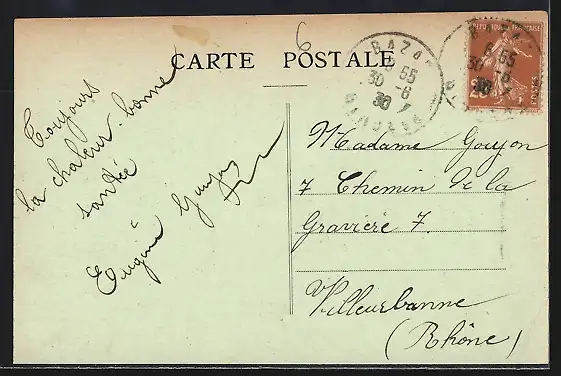 CARTE POSTALE
6
Toujours
la chaleur. bonne
santée
Eugène Goujon
BAZA
6 55
30 -6
30
REPUBLIQUE FRANÇAISE
POSTES
Madame Goujon
7 Chemin de la
Gravière 7.
Villeurbanne
(Rhône)